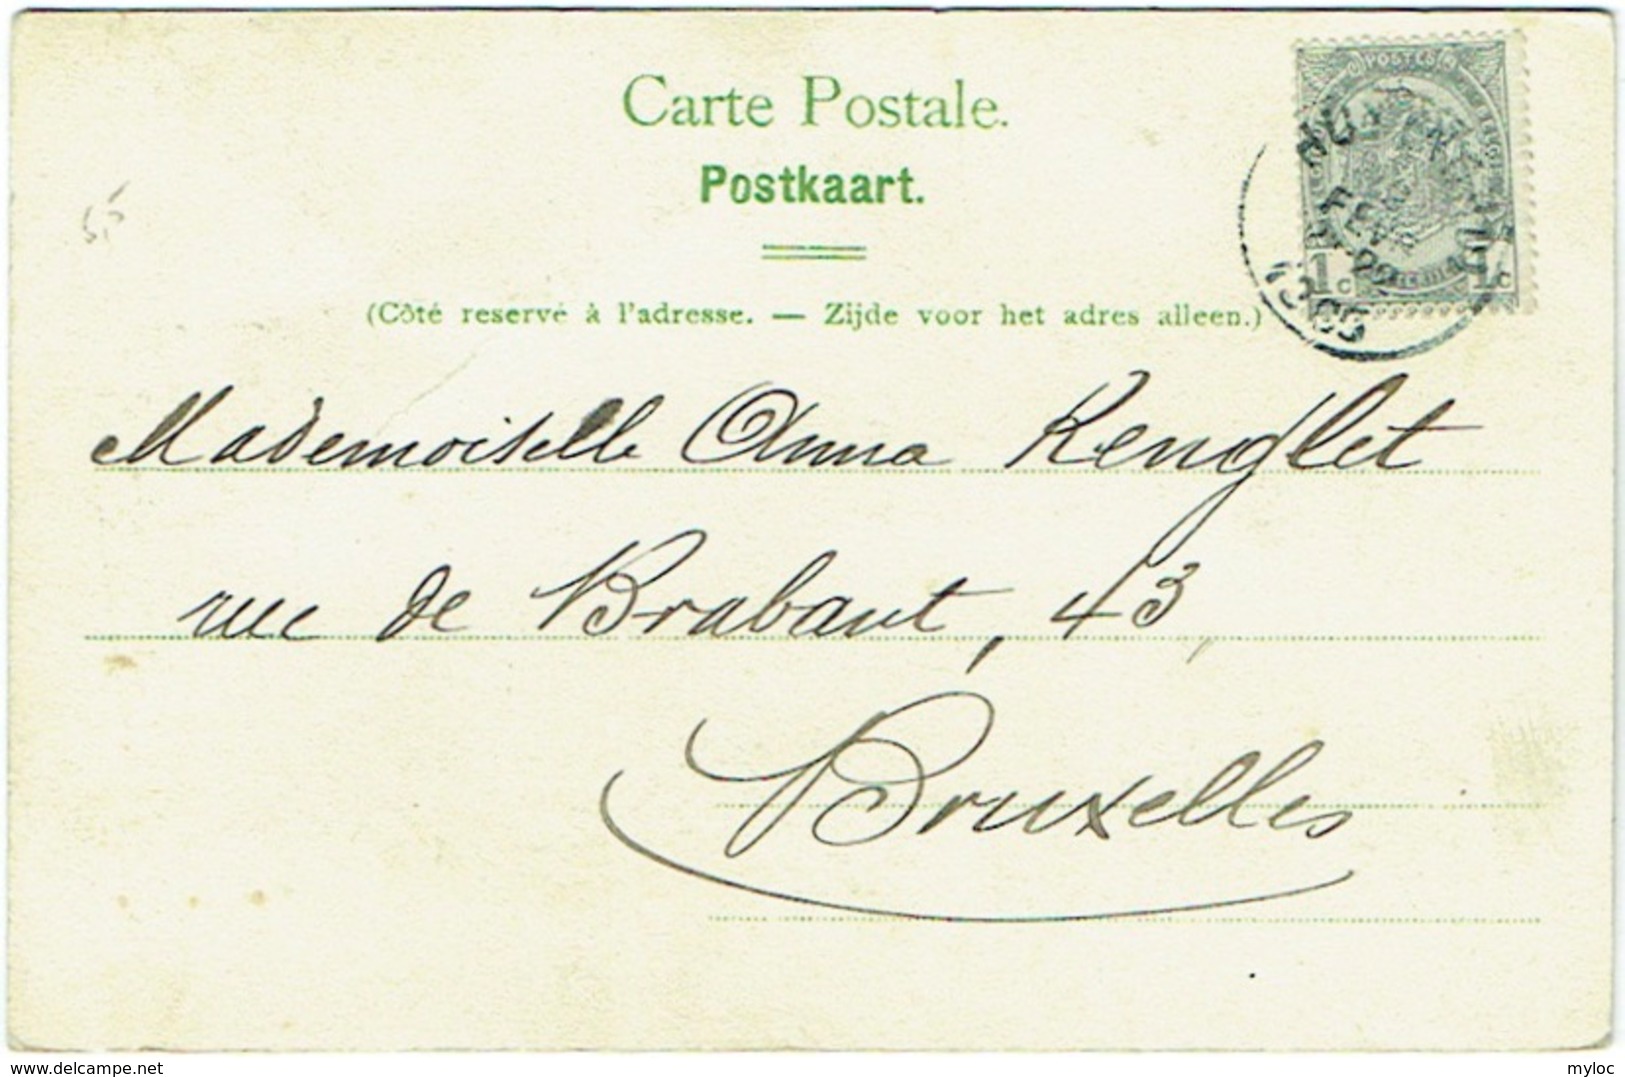 Carte Postale.
Postkaart.
(Côté reservé à l'adresse. — Zijde voor het adres alleen.)
POSTES
1c 1c
FEVR
1905
5,5
Mademoiselle Anna Renglet
rue de Brabant, 43,
Bruxelles
delcampe.net
myloc